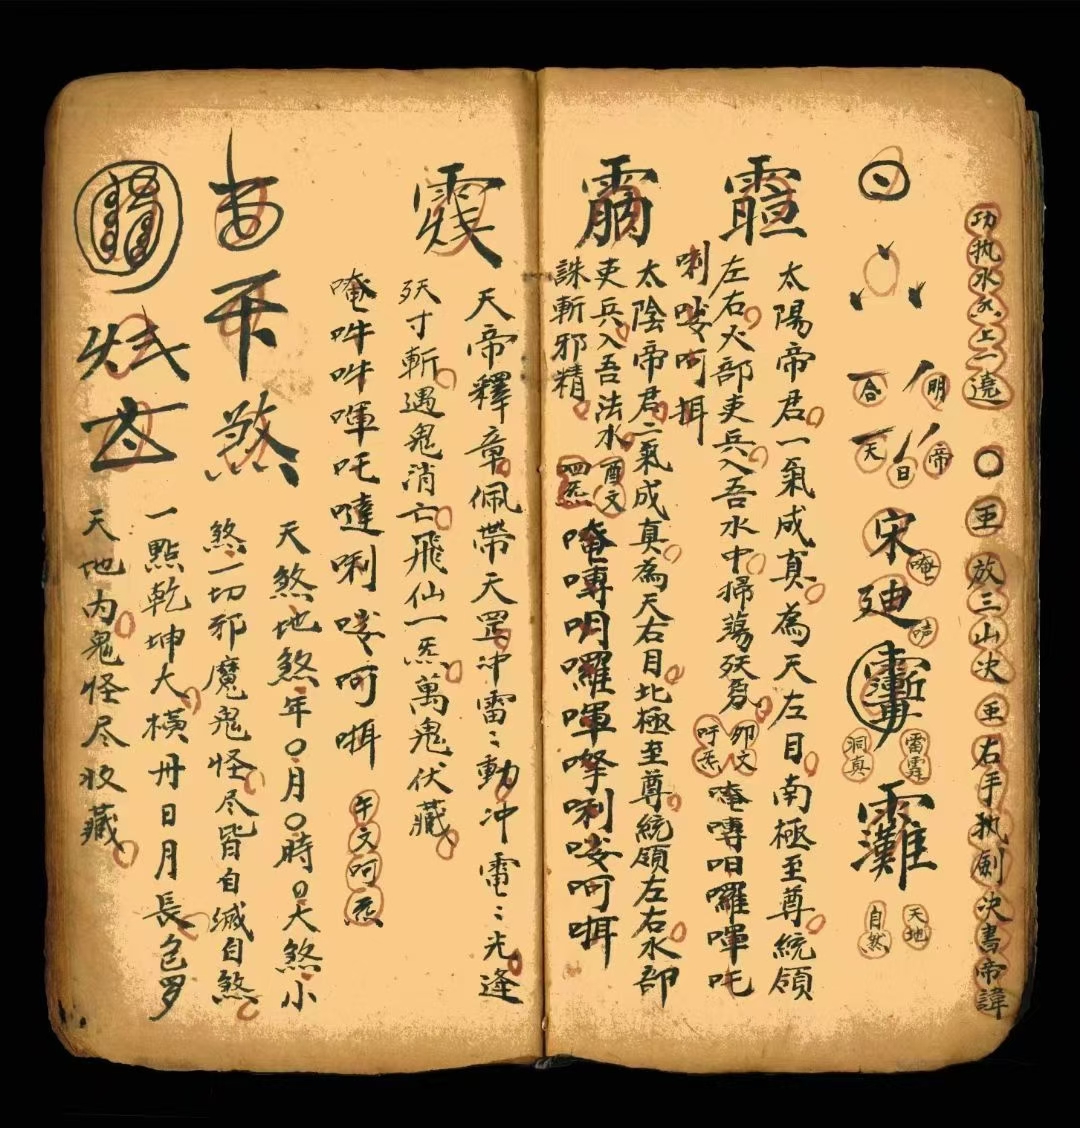 功执水炁上一遶
〇 玉 放三山决 玉 右手执劍决書帝諱
明 合
帝 日 天
宋
唵
廸
吽
雷霆 洞真
天地 自然
太陽帝君一氣成真為天左目南極至尊統領
左右火部吏兵入吾水中掃蕩
卯文 吁炁
唵嚩呬囉唓吒
唎嘙呵㖿
太陰帝君二氣成真為天右目北極至尊統領左右水部
吏兵入吾法水
酉文 呬炁
唵嚩
囉唓
唎嘙呵㖿
誅斬邪精
天帝釋章佩帶天罡冲雷〻動冲電〻光逢
殀寸斬遇鬼消亡飛仙一炁萬鬼伏藏
唵吽吽唓吒噠唎嘙呵㖿
午文呵炁
煞
天煞地煞年〇月〇時〇大煞小
煞一切邪魔鬼怪尽皆自滅自煞
一點乾坤大橫丹日月長包罗
天地内鬼怪尽收藏